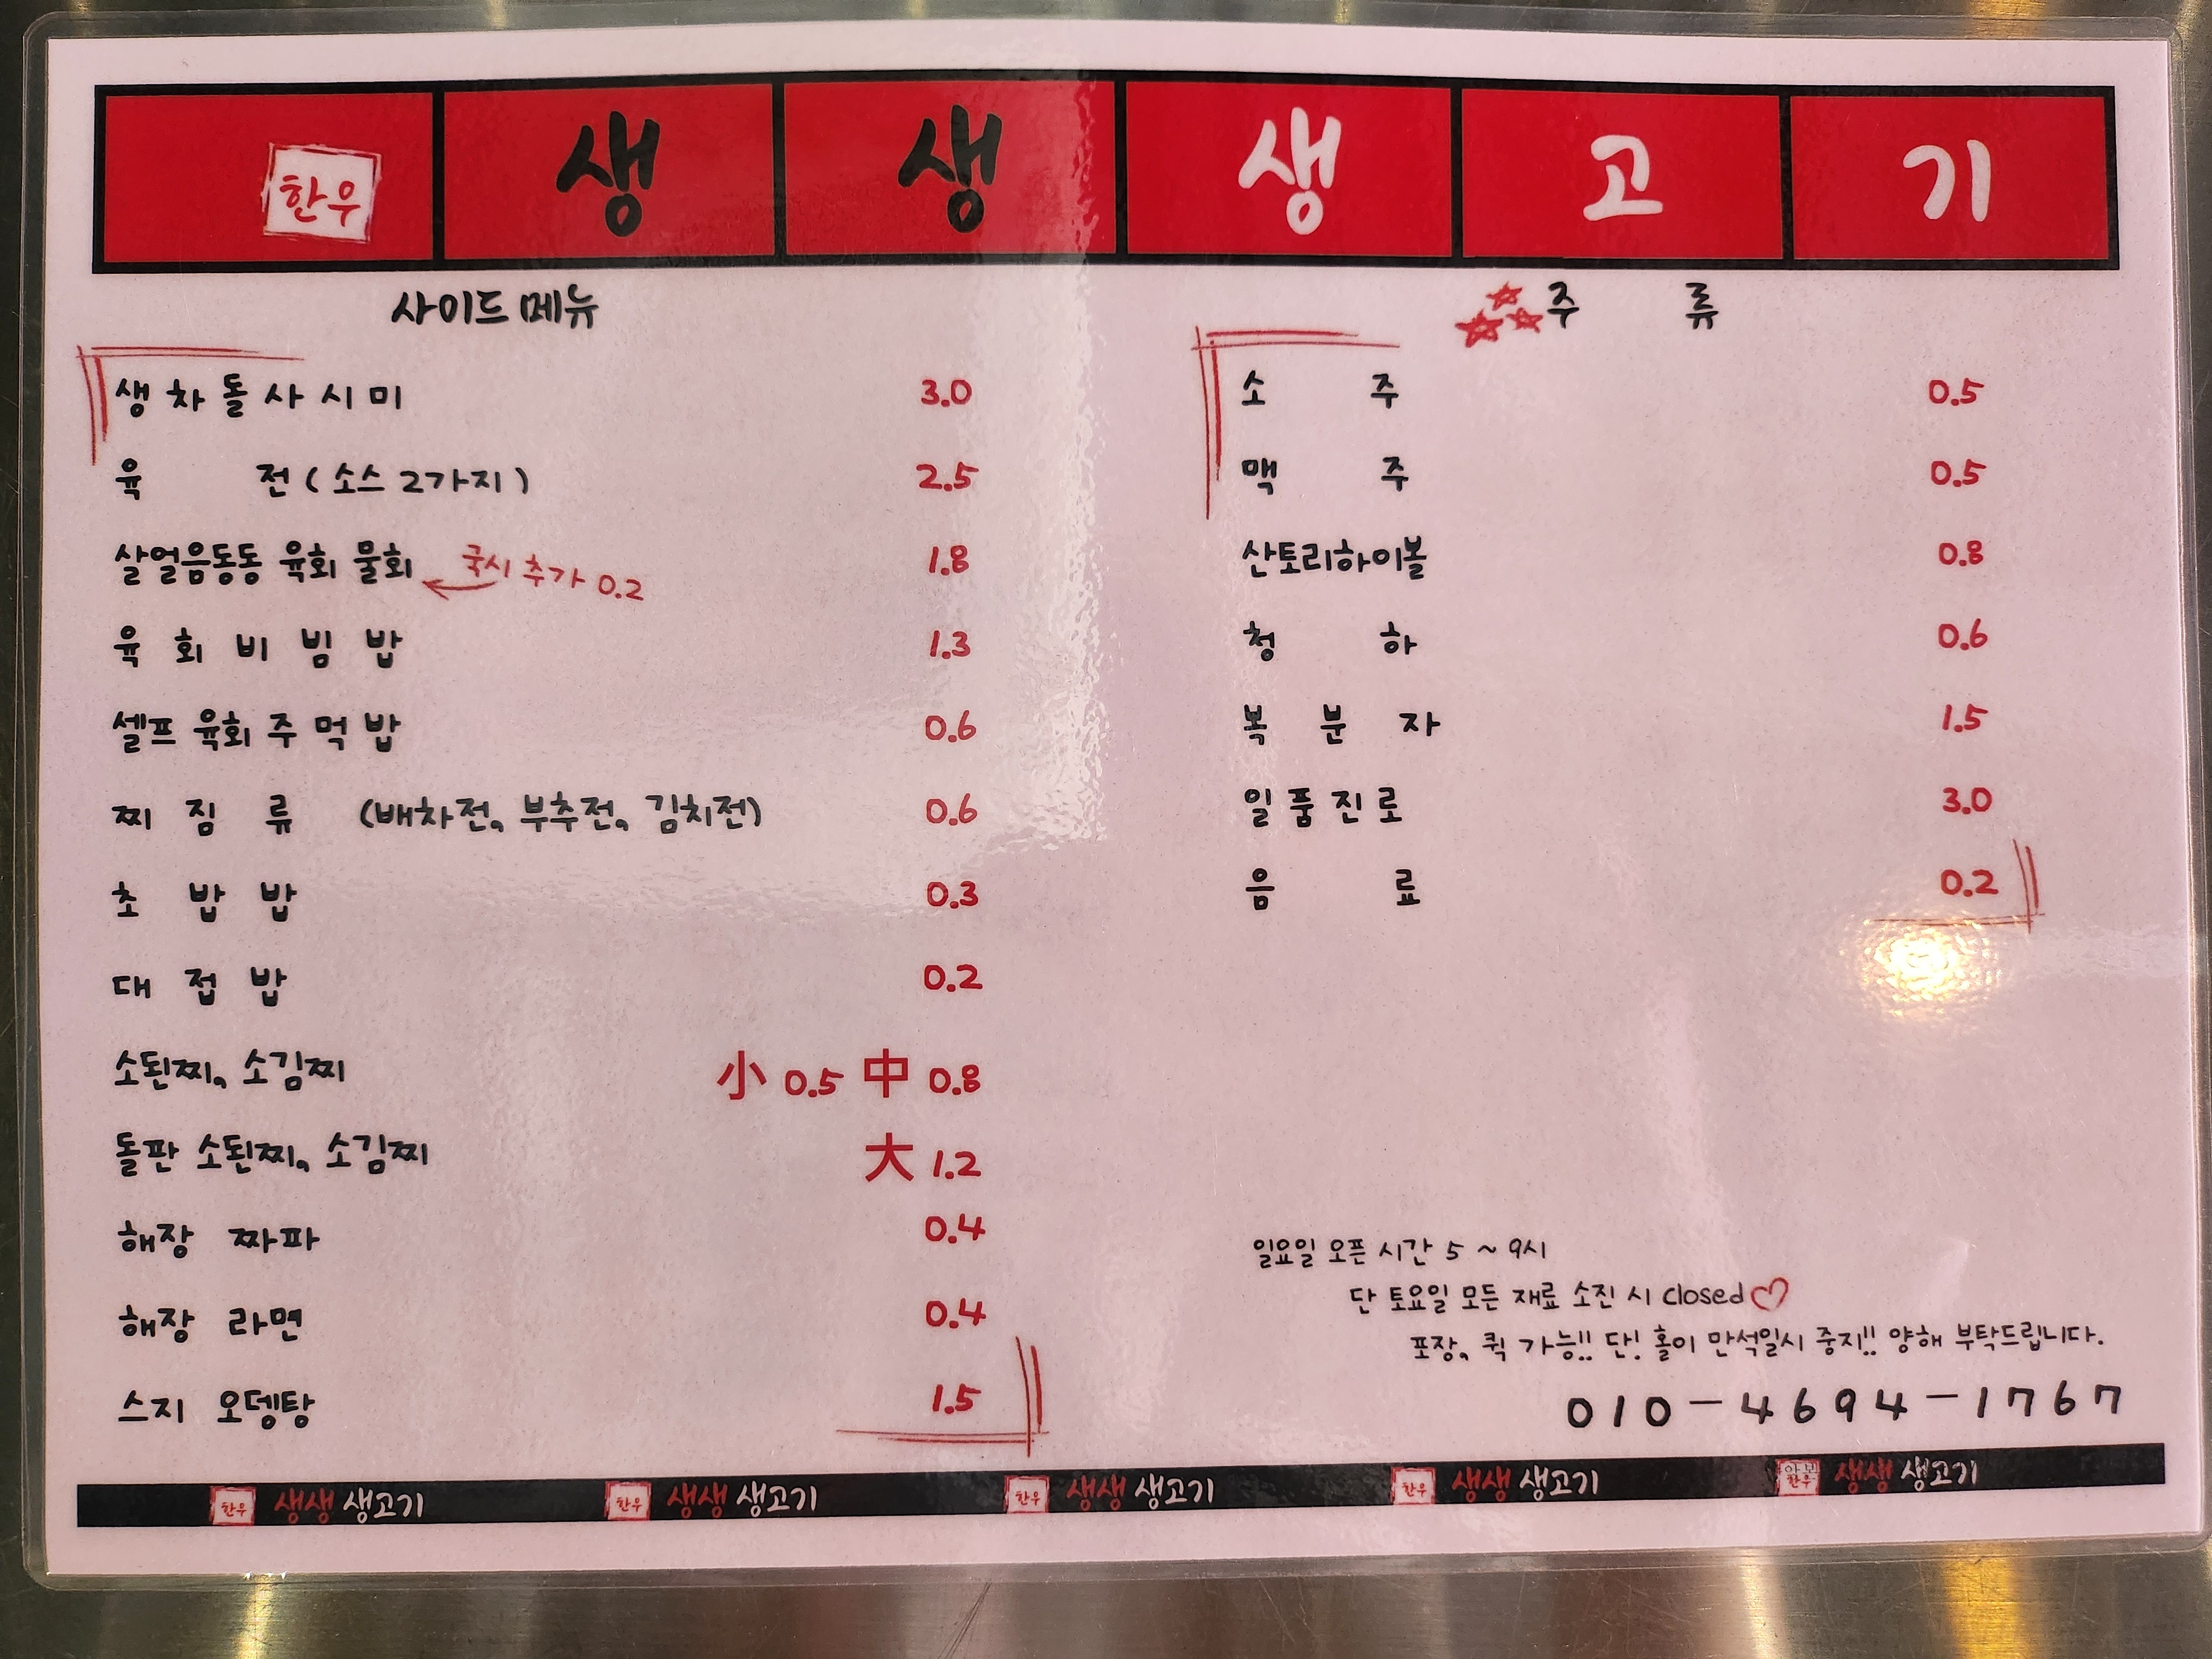 한우 생 생 생 고 기
사이드 메뉴
생 차 돌 사 시 미 3.0
육 전 ( 소스 2가지 ) 2.5
살얼음동동 육회 물회 국시 추가 0.2 1.8
육 회 비 빔 밥 1.3
셀프 육회 주 먹 밥 0.6
찌 짐 류 (배차전, 부추전, 김치전) 0.6
초 밥 밥 0.3
대 접 밥 0.2
소된찌, 소김찌 小 0.5 中 0.8
돌판 소된찌, 소김찌 大 1.2
해장 짜파 0.4
해장 라면 0.4
스지 오뎅탕 1.5
주 류
소 주 0.5
맥 주 0.5
산토리하이볼 0.8
청 하 0.6
복 분 자 1.5
일 품 진 로 3.0
음 료 0.2
일요일 오픈 시간 5 ~ 9시
단 토요일 모든 재료 소진 시 closed♡
포장, 퀵 가능!! 단! 홀이 만석일시 중지!! 양해 부탁드립니다.
010-4694-1767
한우 생생 생고기 한우 생생 생고기 한우 생생 생고기 한우 생생 생고기 한우 생생 생고기